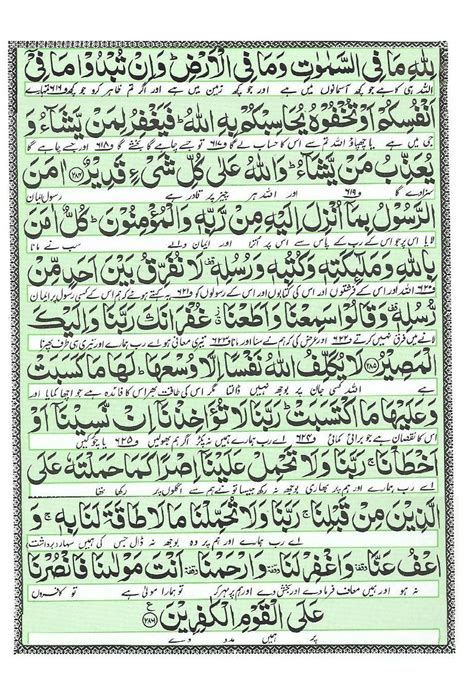 لِلّٰهِ مَا فِی السَّمٰوٰتِ وَمَا فِی الْاَرْضِ ؕ وَاِنْ تُبْدُوْا مَا فِیْۤ
اللہ ہی کا ہے جو کچھ آسمانوں میں ہے اور جو کچھ زمین میں ہے اور اگر تم ظاہر کرو جو کچھ ف۶۱۶ تمہارے
اَنْفُسِكُمْ اَوْ تُخْفُوْهُ یُحَاسِبْكُمْ بِهِ اللّٰهُ ؕ فَیَغْفِرُ لِمَنْ یَّشَآءُ وَ
جی میں ہے یا چھپاؤ اللہ تم سے اس کا حساب لے گا ف۶۱۷ تو جسے چاہے گا بخشے گا ف۶۱۸ اور جسے چاہے گا
یُعَذِّبُ مَنْ یَّشَآءُ ؕ وَاللّٰهُ عَلٰی كُلِّ شَیْءٍ قَدِیْرٌ ﴿۲۸۴﴾ اٰمَنَ
سزا دے گا ف۶۱۹ اور اللہ ہر چیز پر قادر ہے رسول ایمان
الرَّسُوْلُ بِمَاۤ اُنْزِلَ اِلَیْهِ مِنْ رَّبِّهٖ وَالْمُؤْمِنُوْنَ ؕ كُلٌّ اٰمَنَ
لایا اس پر جو اس کے رب کے پاس سے اس پر اترا اور ایمان والے سب نے مانا
بِاللّٰهِ وَمَلٰٓئِكَتِهٖ وَكُتُبِهٖ وَرُسُلِهٖ ۟ لَا نُفَرِّقُ بَیْنَ اَحَدٍ مِّنْ
ف۶۲۰ اللہ اور اس کے فرشتوں اور اس کی کتابوں اور اس کے رسولوں کو ف۶۲۱ یہ کہتے ہوئے کہ ہم اس کے کسی رسول پر ایمان
رُّسُلِهٖ ۟ وَقَالُوْا سَمِعْنَا وَاَطَعْنَا ٭۫ غُفْرَانَكَ رَبَّنَا وَاِلَیْكَ
لانے میں فرق نہیں کرتے ف۶۲۲ اور عرض کی کہ ہم نے سنا اور مانا ف۶۲۳ تیری معافی ہو اے رب ہمارے اور تیری ہی طرف پھرنا
الْمَصِیْرُ ﴿۲۸۵﴾ لَا یُكَلِّفُ اللّٰهُ نَفْسًا اِلَّا وُسْعَهَا ؕ لَهَا مَا كَسَبَتْ
ہے اللہ کسی جان پر بوجھ نہیں ڈالتا مگر اس کی طاقت بھر اس کا فائدہ ہے جو اچھا کمایا اور
وَعَلَیْهَا مَا اكْتَسَبَتْ ؕ رَبَّنَا لَا تُؤَاخِذْنَاۤ اِنْ نَّسِیْنَاۤ اَوْ
اس کا نقصان ہے جو برائی کمائی ف۶۲۴ اے رب ہمارے ہمیں نہ پکڑ اگر ہم بھولیں ف۶۲۵ یا چوکیں
اَخْطَاْنَا ۚ رَبَّنَا وَلَا تَحْمِلْ عَلَیْنَاۤ اِصْرًا كَمَا حَمَلْتَهٗ عَلَی
اے رب ہمارے اور ہم پر بھاری بوجھ نہ رکھ جیسا تو نے ہم سے اگلوں پر رکھا تھا
الَّذِیْنَ مِنْ قَبْلِنَا ۚ رَبَّنَا وَلَا تُحَمِّلْنَا مَا لَا طَاقَةَ لَنَا بِهٖ ۚ وَ
اے رب ہمارے اور ہم پر وہ بوجھ نہ ڈال جس کی ہمیں سہار برداشت
اعْفُ عَنَّا وقفة وَاغْفِرْ لَنَا وقفة وَارْحَمْنَا وقفة اَنْتَ مَوْلٰىنَا فَانْصُرْنَا
نہ ہو اور ہمیں معاف فرما دے اور بخش دے اور ہم پر مہر کر تو ہمارا مولیٰ ہے تو کافروں
عَلَی الْقَوْمِ الْكٰفِرِیْنَ ﴿۲۸۶﴾ ع
پر ہمیں مدد دے